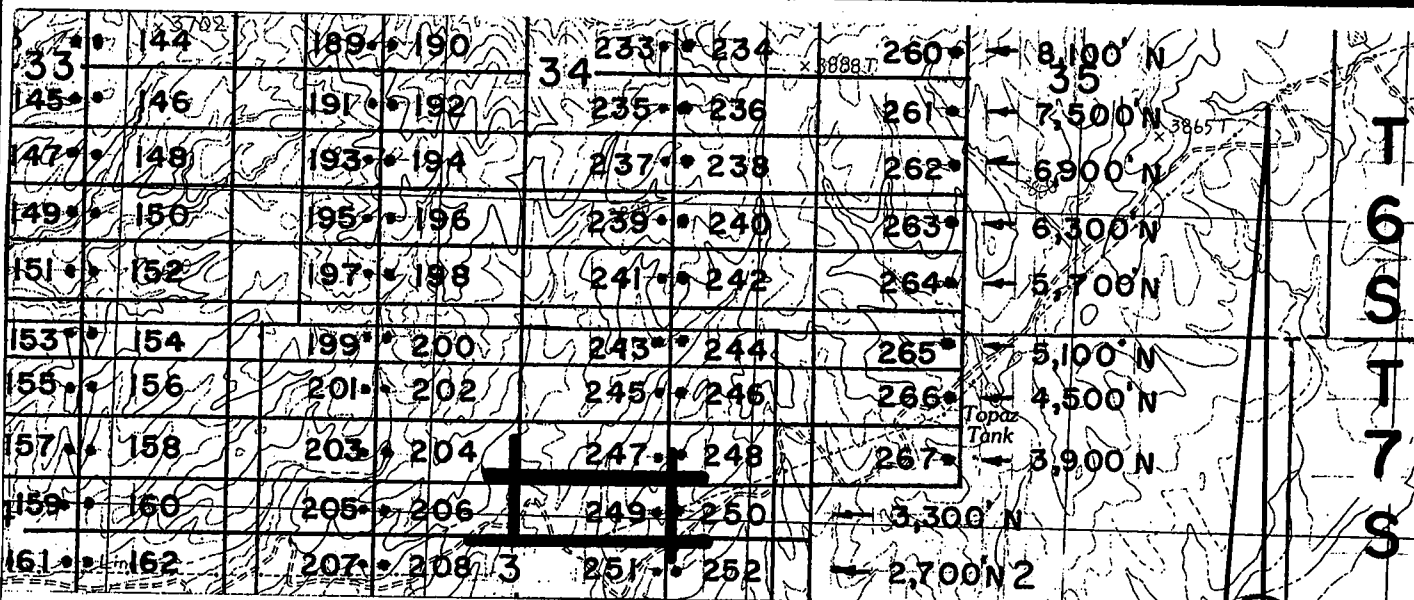 x 3702
144 189 190 233 234 260 8,100' N
33 34 x 3888T 35
145 146 191 192 235 236 261 7,500' N
x 3865T
T
147 148 193 194 237 238 262 6,900' N
6
149 150 195 196 239 240 263 6,300' N
151 152 197 198 241 242 264 5,700' N
S
153 154 199 200 243 244 265 5,100' N
T
155 156 201 202 245 246 266 4,500' N
Topaz
Tank
157 158 203 204 247 248 267 3,900' N
7
159 160 205 206 249 250 3,300' N
S
161 162 207 208 3 251 252 2,700' N 2